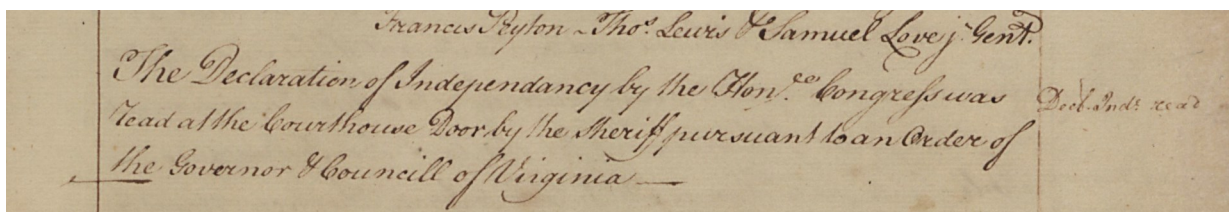 Francis Peyton - Thos. Lewis & Samuel Love jr. Gent.
The Declaration of Independancy by the Honble. Congress was
read at the Courthouse Door by the Sheriff pursuant to an Order of
the Governor & Councill of Virginia
Decl. Inds. read